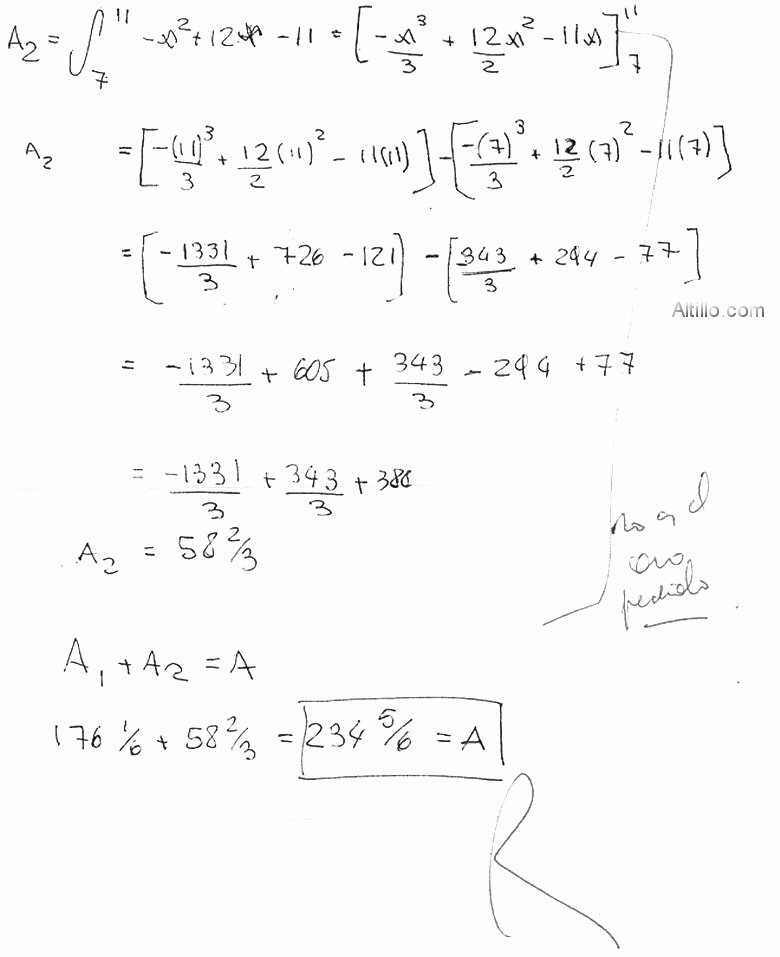 A₂ = ∫₇¹¹ -x² + 12x - 11 = [-x³/3 + 12/2 x² - 11x]₇¹¹
A₂ = [-(11)³/3 + 12/2 (11)² - 11(11)] - [-(7)³/3 + 12/2 (7)² - 11(7)]
= [-1331/3 + 726 - 121] - [343/3 + 294 - 77]
Altillo.com
= -1331/3 + 605 + 343/3 - 294 + 77
= -1331/3 + 343/3 + 388
A₂ = 58 2/3
no es el
pedido
A₁ + A₂ = A
176 1/6 + 58 2/3 = 234 5/6 = A